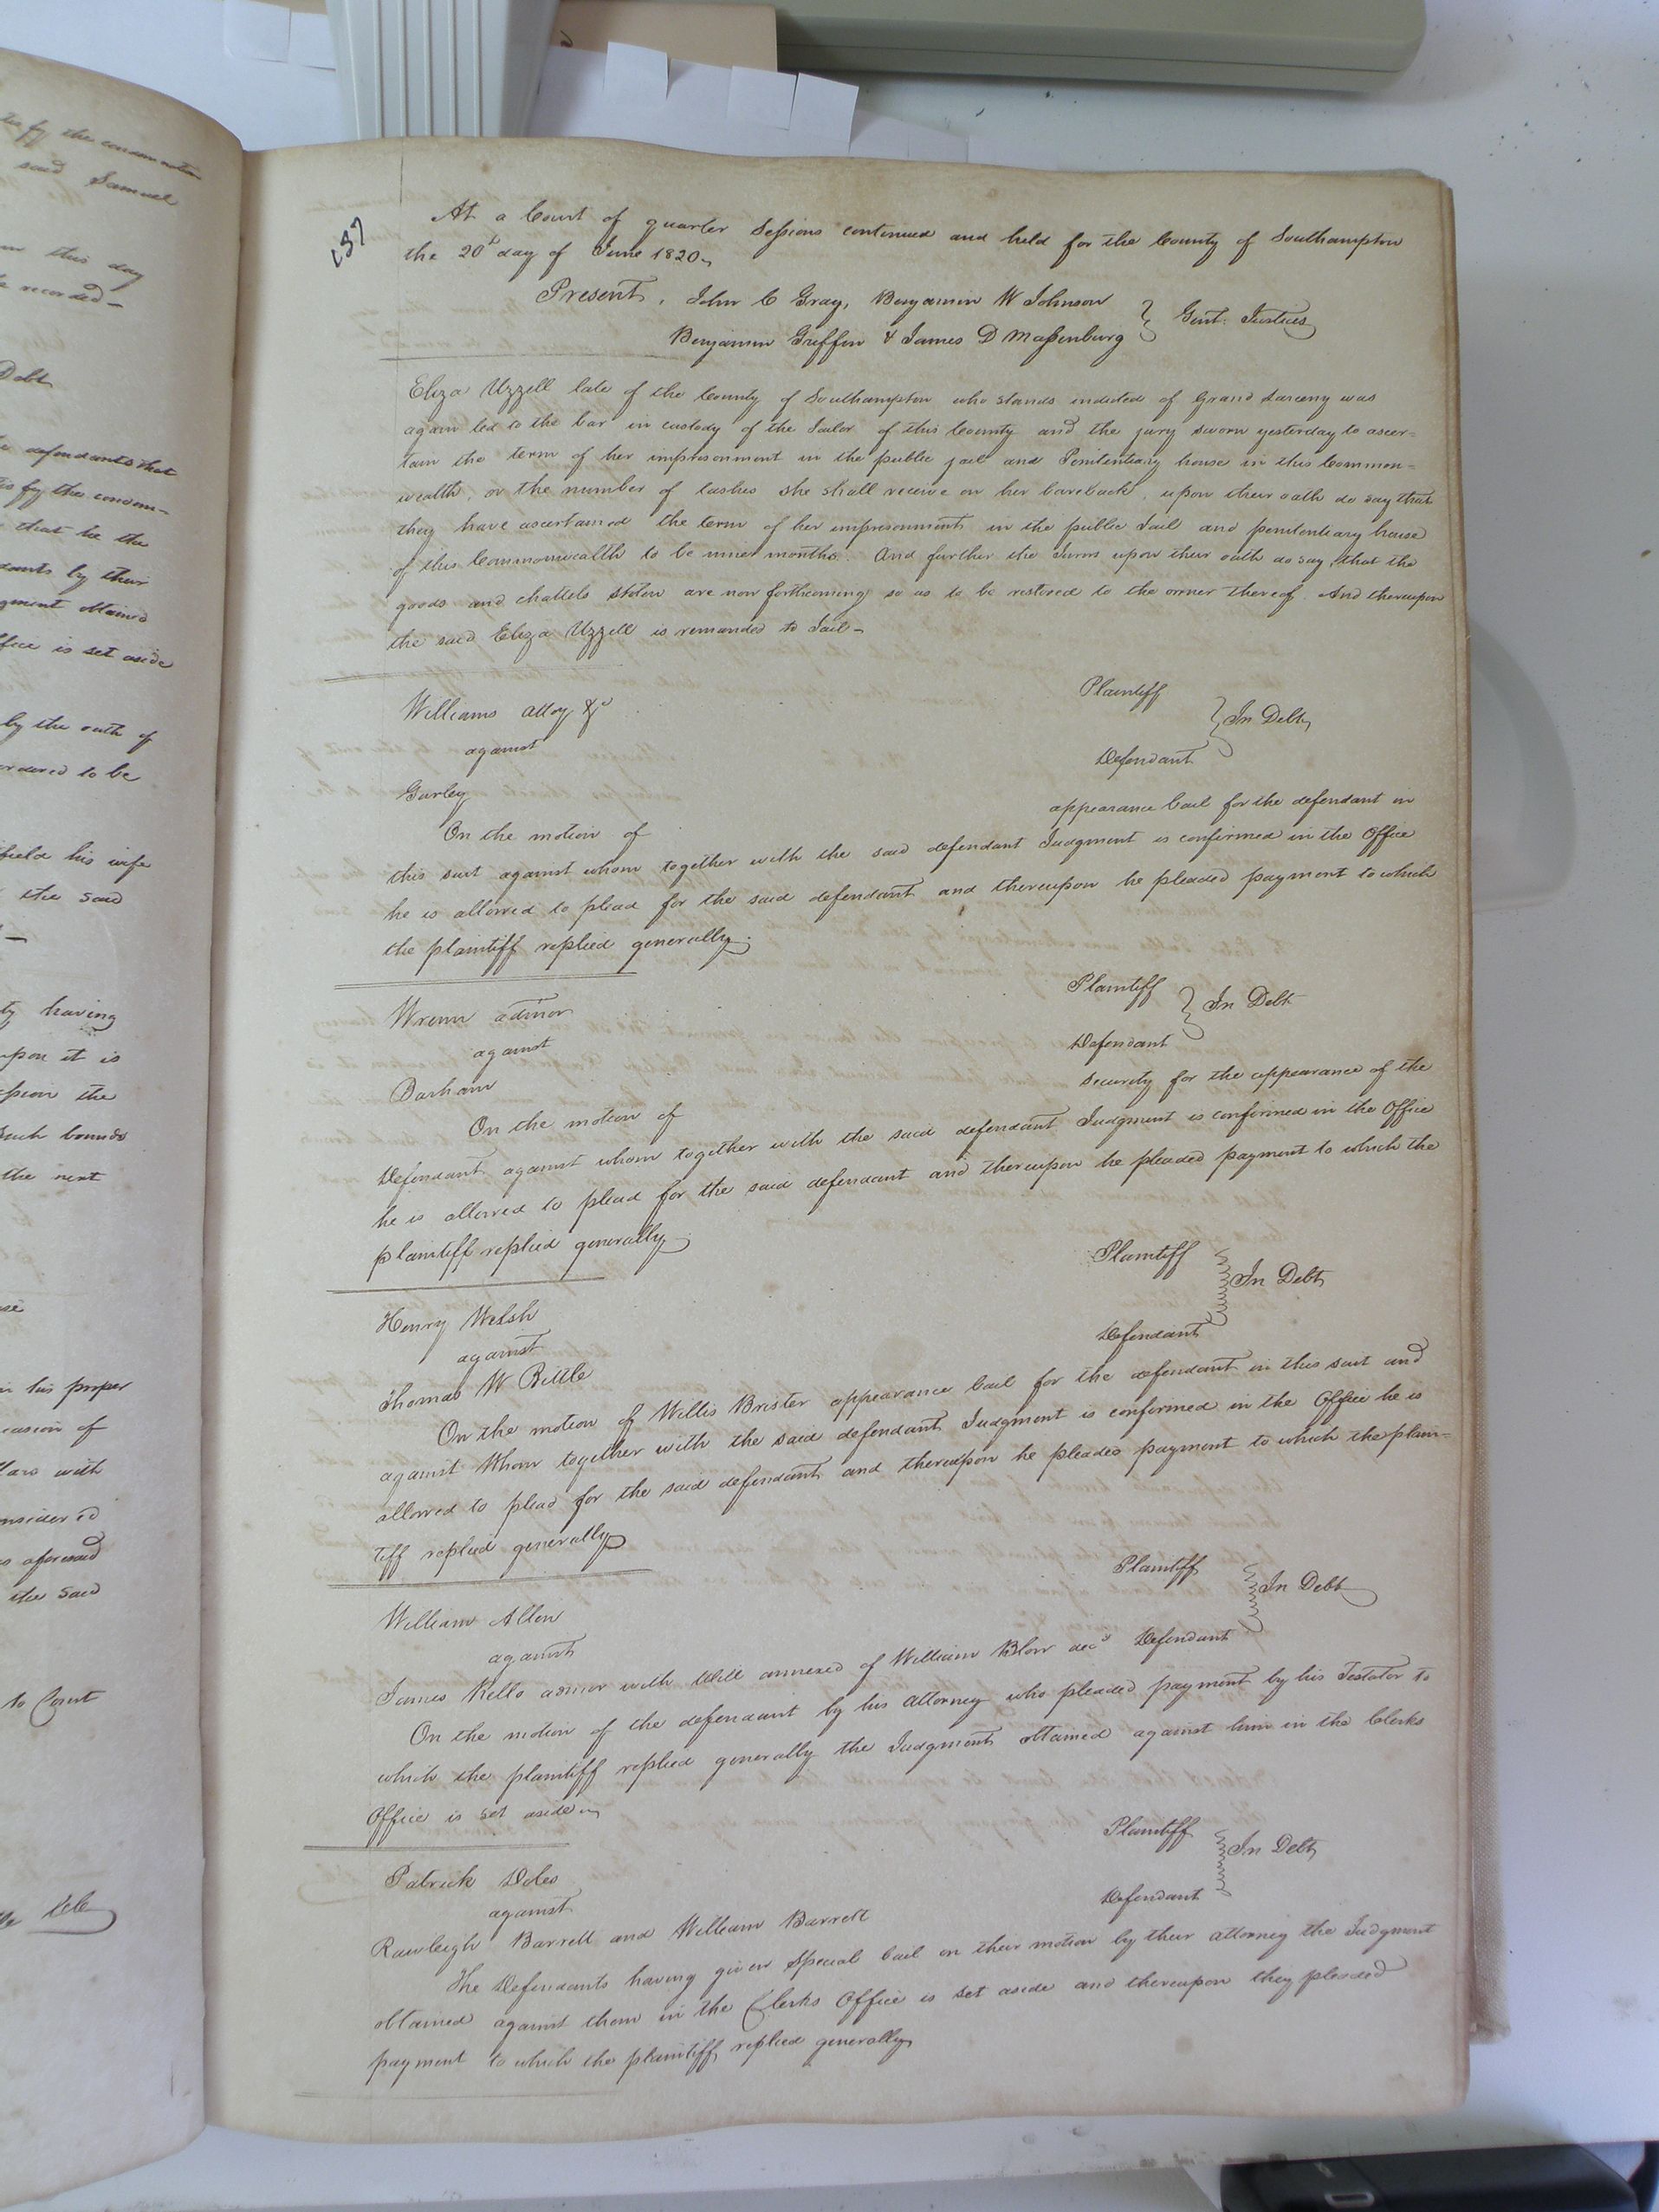 ies by the condemnation
said Samuel
this day
be recorded —
Debt
defendants that
by the condem-
that he the
by their
Judgment obtained
Office is set aside
by the oath of
ordered to be
his wife
the said
having
upon it is
the
such bounds
the next
his proper
occasion of
with
considered
as aforesaid
the said
to Court
137
At a Court of quarter Sessions continued and held for the County of Southampton
the 20th day of June 1820
Present, John C Gray, Benjamin W Johnson
Benjamin Griffin & James D Massenburg } Gent. Justices
Eliza Uzzell late of the County of Southampton who stands indicted of Grand Larceny was
again led to the bar in custody of the Jailor of this County and the jury sworn yesterday to ascer=
tain the term of her imprisonment in the public jail and Penitentiary house in this Common=
wealth, or the number of lashes she shall receive on her bareback, upon their oath do say that
they have ascertained the term of her imprisonment in the public Jail and penitentiary house
of this Commonwealth to be nine months. And further the Jurors upon their oath do say that the
goods and chattels stolen are now forthcoming so as to be restored to the owner thereof. And thereupon
the said Eliza Uzzell is remanded to Jail —
Williams assoy &c Plaintiff
against } In Debt
Gurley Defendant
On the motion of appearance bail for the defendant in
this suit against whom together with the said defendant Judgment is confirmed in the Office
he is allowed to plead for the said defendant and thereupon he pleaded payment to which
the plaintiff replied generally.
Wrenn admor Plaintiff
against } In Debt
Barham Defendant
On the motion of Security for the appearance of the
Defendant against whom together with the said defendant Judgment is confirmed in the Office
he is allowed to plead for the said defendant and thereupon he pleaded payment to which the
plaintiff replied generally
Henry Welsh Plaintiff
against } In Debt
Thomas W Bittle Defendant
On the motion of Willis Brister appearance bail for the defendant in this suit and
against Whom together with the said defendant Judgment is confirmed in the Office he is
allowed to plead for the said defendant and thereupon he pleaded payment to which the plain=
tiff replied generally
William Allen Plaintiff
against } In Debt
James Kello admor with Will annexed of William Blow decd Defendant
On the motion of the defendant by his Attorney who pleaded payment by his Testator to
which the plaintiff replied generally the Judgment obtained against him in the Clerks
Office is set aside
Patrick Doles Plaintiff
against } In Debt
Rawleigh Barrett and William Barrett Defendant
The Defendants having given special bail on their motion by their attorney the Judgment
obtained against them in the Clerks Office is set aside and thereupon they pleaded
payment to which the plaintiff replied generally